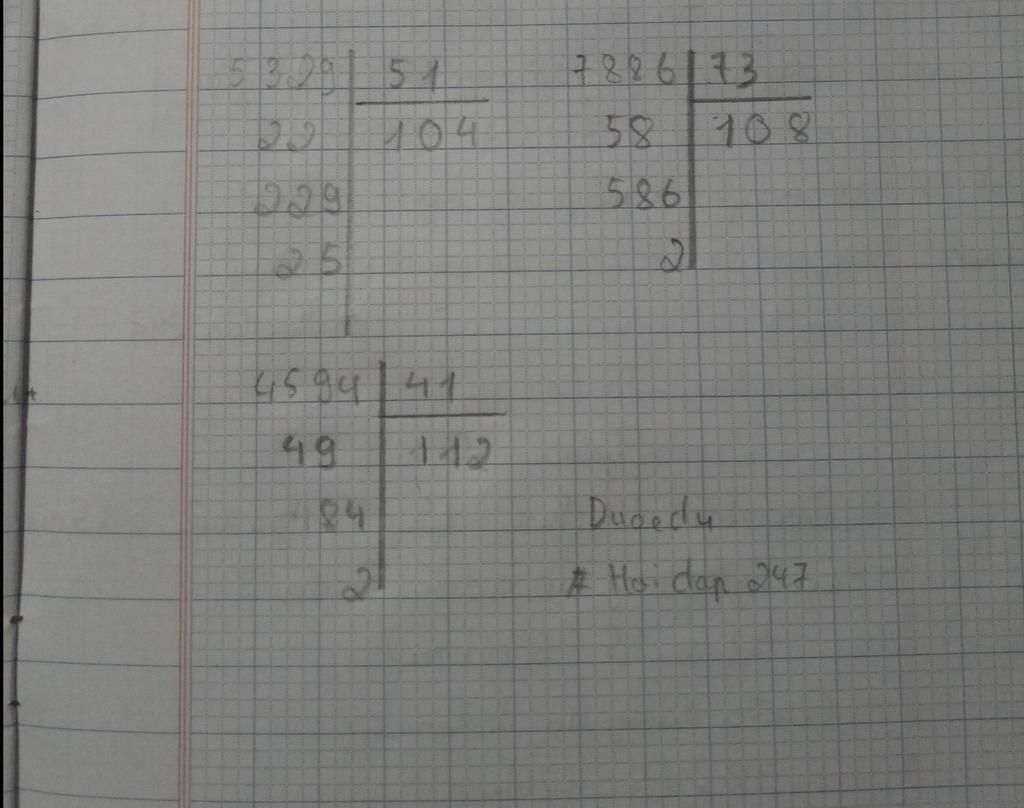 5329 51
22 104
229
25
7886 73
58 108
586
2
4594 41
49 112
84
2
Dugedu
# Hoidap 247